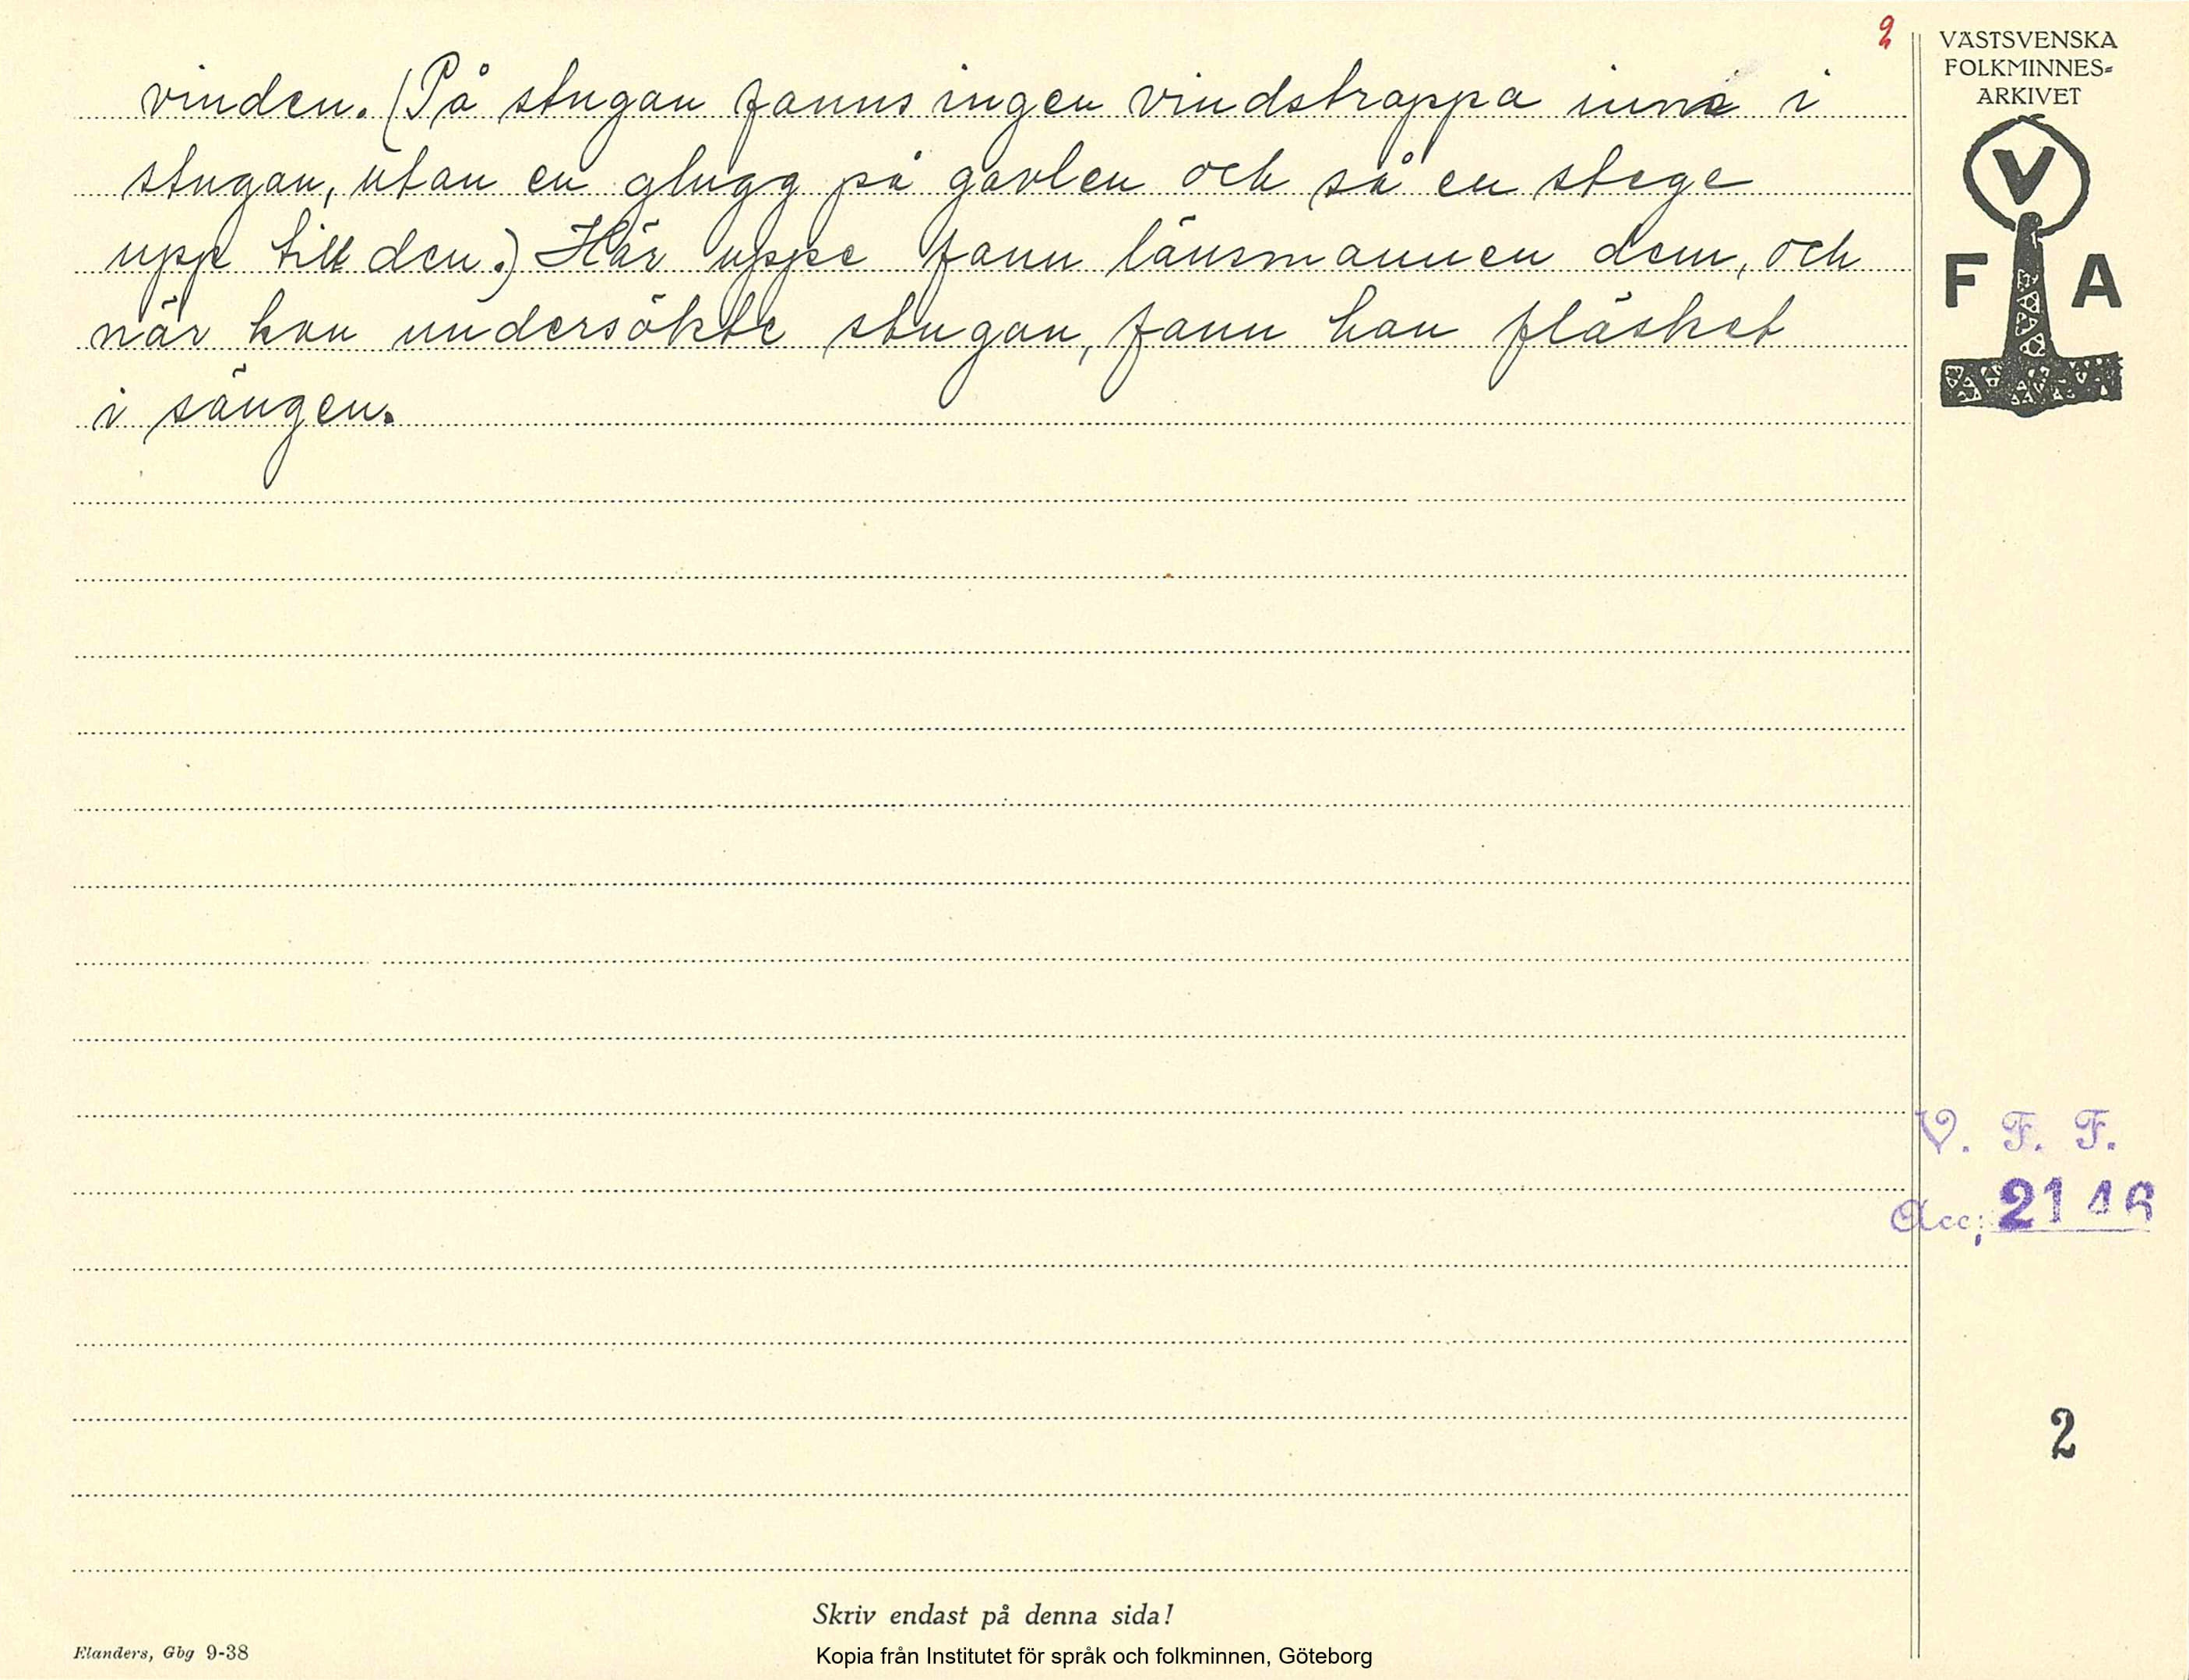 2
vinden. (På stugan fanns ingen vindstrappa inne i
stugan, utan en glugg på gavlen och så en stege
upp till den.) Här uppe fann länsmannen dem, och
när han undersökte stugan, fann han fläsket
i sängen.
VÄSTSVENSKA
FOLKMINNES-
ARKIVET
V
F A
V. F. F.
Acc: 2146
2
Skriv endast på denna sida!
Elanders, Gbg 9-38
Kopia från Institutet för språk och folkminnen, Göteborg